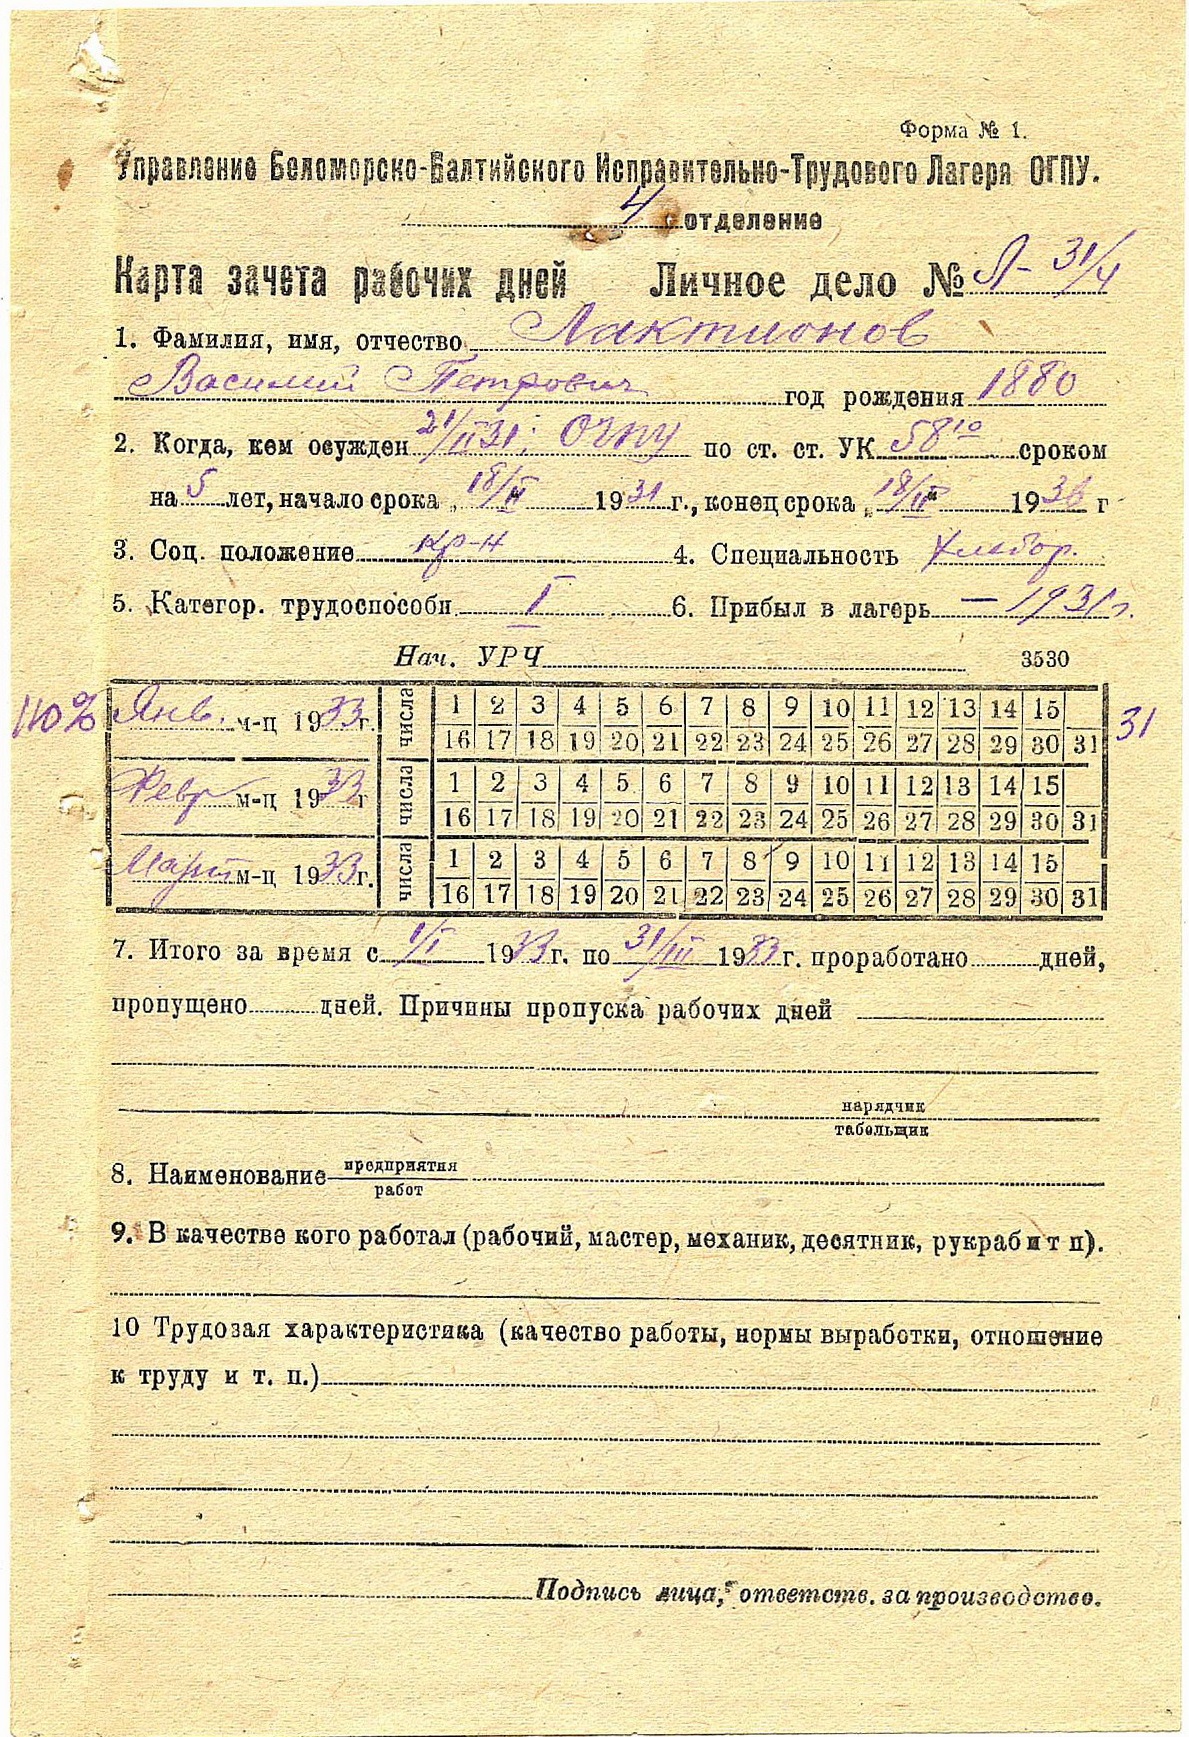 Форма № 1.
Управление Беломорско-Балтийского Исправительно-Трудового Лагеря ОГПУ.
4 отделение
Карта зачета рабочих дней Личное дело № Л-31/4
1. Фамилия, имя, отчество Лактионов
Василий Петрович год рождения 1880
2. Когда, кем осужден 21/II 31 ОГПУ по ст. ст. УК 58 10 сроком
на 5 лет, начало срока „18/II 1931 г., конец срока „18/II" 1936 г
3. Соц. положение кр-н 4. Специальность Хлебор.
5. Категор. трудоспособн. I 6. Прибыл в лагерь — 1931 г.
Нач. УРЧ 3530
110% Янв. м-ц 1933 г. числа 1 2 3 4 5 6 7 8 9 10 11 12 13 14 15 31
16 17 18 19 20 21 22 23 24 25 26 27 28 29 30 31
Февр м-ц 1933 г числа 1 2 3 4 5 6 7 8 9 10 11 12 13 14 15
16 17 18 19 20 21 22 23 24 25 26 27 28 29 30 31
Март м-ц 1933 г. числа 1 2 3 4 5 6 7 8 9 10 11 12 13 14 15
16 17 18 19 20 21 22 23 24 25 26 27 28 29 30 31
7. Итого за время с 1/I 1933 г. по 31/III 1933 г. проработано дней,
пропущено дней. Причины пропуска рабочих дней
нарядчик
табельщик
8. Наименование предприятия
работ
9. В качестве кого работал (рабочий, мастер, механик, десятник, рукраб и т п).
10 Трудовая характеристика (качество работы, нормы выработки, отношение
к труду и т. п.)
Подпись лица, ответств. за производство.